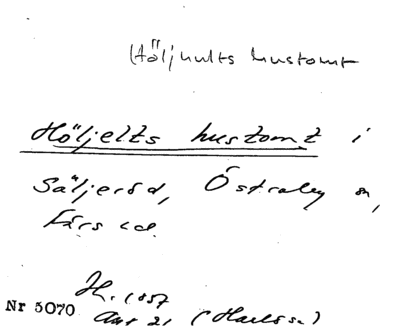 Höljhults hustomt
Höljelts hustomt i
Säljeröd, Östraby sn,
Färs hd.
H. 1857
Nr 5070